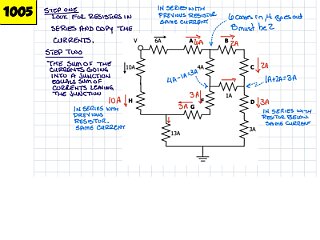 1005
STEP ONE
LOOK FOR RESISTORS IN
SERIES AND COPY THE
CURRENTS.
STEP TWO
THE SUM OF THE
CURRENTS GOING
INTO A JUNCTION
EQUALS SUM OF
CURRENTS LEAVING
THE JUNCTION
IN SERIES WITH
PREVIOUS RESISTOR
SAME CURRENT
V
6A
A
6A
B
2A
B must be 2
10A
4A
C
2A
4A-1A=3A
1A
1A+2A=3A
10A
H
3A
F
D
3A
IN SERIES WITH
PREVIOUS
RESISTOR.
SAME CURRENT
3A
G
IN SERIES WITH
RESISTOR BELOW
SAME CURRENT
13A
3A